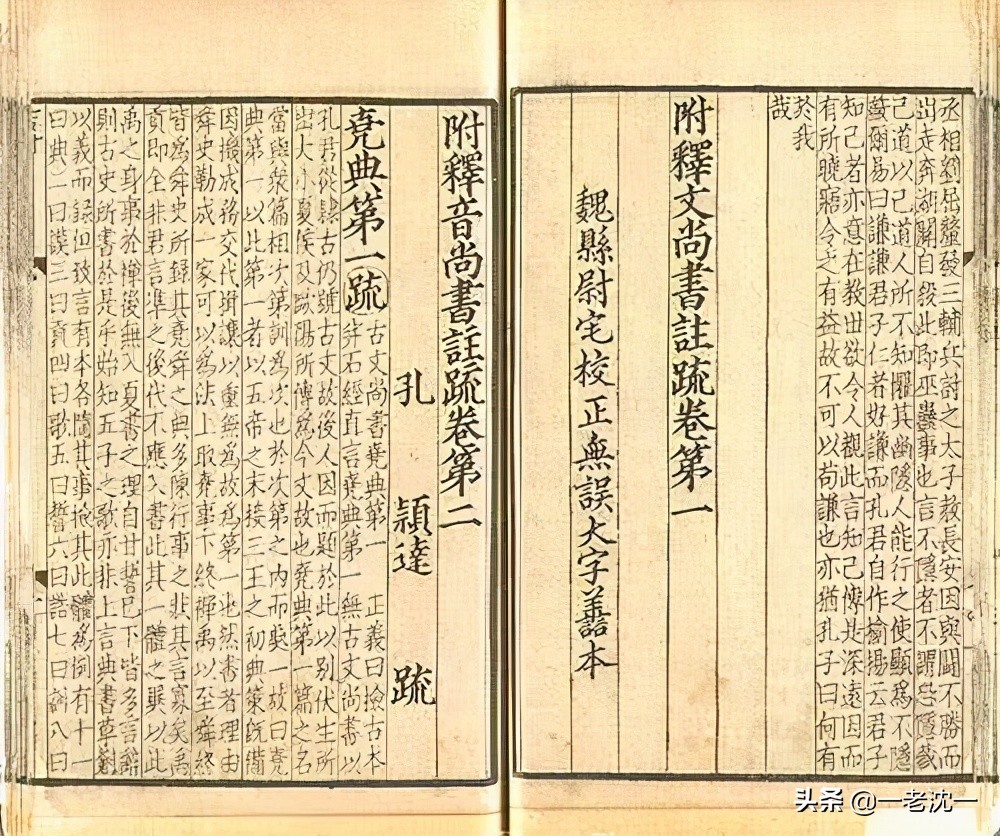 丞相劉屈氂發三輔兵討之太子教長安因與鬭不勝而
出走奔湖關自殺此即巫蠱事也言不隱者不謂恐隱蔽
己道以己道人所不知懼其幽隱人能行之使顯爲不隱
蔽爾易曰謙謙君子仁者好謙而孔君自作揄揚云君子
知己者亦意在教世欲令人觀此言知己傳其深遠因而
有所曉寤令之有益故不可以苟謙也亦猶孔子曰何有
於我
哉
附釋文尚書註䟽卷第一
魏縣尉宅校正無誤大字善本
附釋音尚書註䟽卷第二
孔 頴達 䟽
堯典第一 䟽 古文尚書堯典第一 正義曰檢古本
并石經直言堯典第一無古文尚書以
孔君從隸古仍號古文故後人因而題於此以別伏生所
出大小夏侯及歐陽所傳爲今文故也堯典第一篇之名
當與衆篇相次第訓爲次也於次第之內而處一故曰堯
典第一以此第一者以五帝之末接三王之初典策旣備
因機成務交代揖讓以垂無爲故爲第一也然書者理由
舜史勒成一家可以爲法上取堯事下終禪禹以至舜終
皆爲舜史所録其堯舜之典多陳行事之狀其言寡矣禹
貢即全非君言準之後代不應入書此其一體之異以此
禹之身事於禪後無入夏書之理自甘誓已下皆多言辭
則古史所書於是乎始知五子之歌亦非上言典書草創
以義而録但致言有本各隨其事檢其此體爲例有十一
曰典二曰謨三曰貢四曰歌五曰誓六曰誥七曰訓八曰
头条 @一老沈一